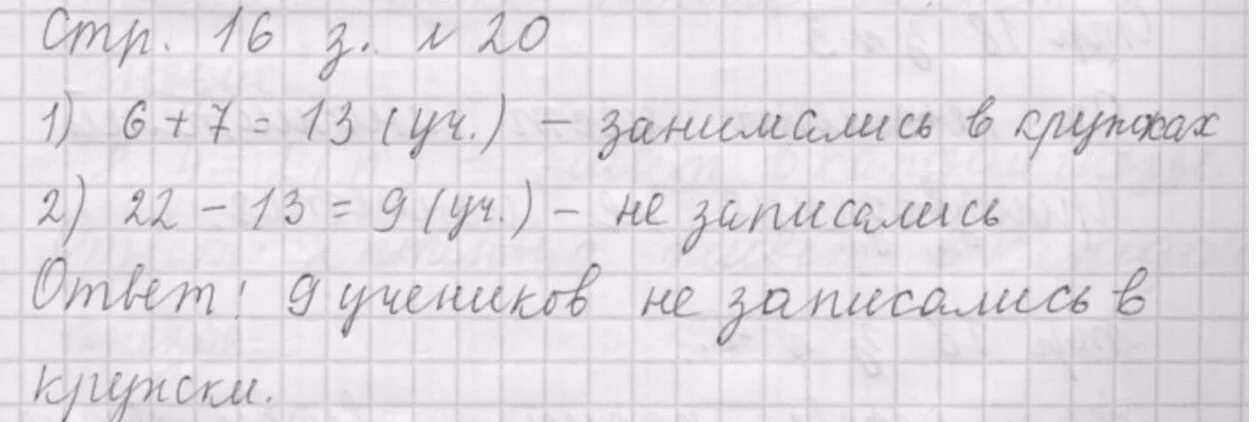 Стр. 16 з. № 20
1) 6 + 7 = 13 (уч.) – занимались в кружках
2) 22 – 13 = 9 (уч.) – не записались
Ответ: 9 учеников не записались в
кружки.